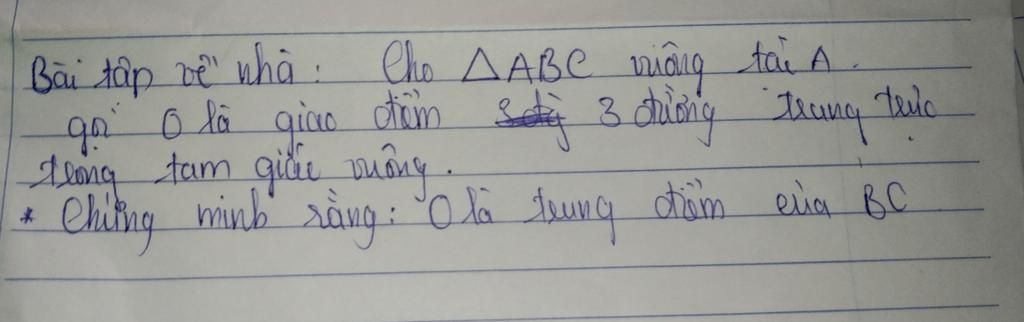 Bài tập về nhà: Cho △ABC vuông tại A.
gọi O là giao điểm 3 đường trung trực
trong tam giác vuông.
* Chứng minh rằng: O là trung điểm của BC